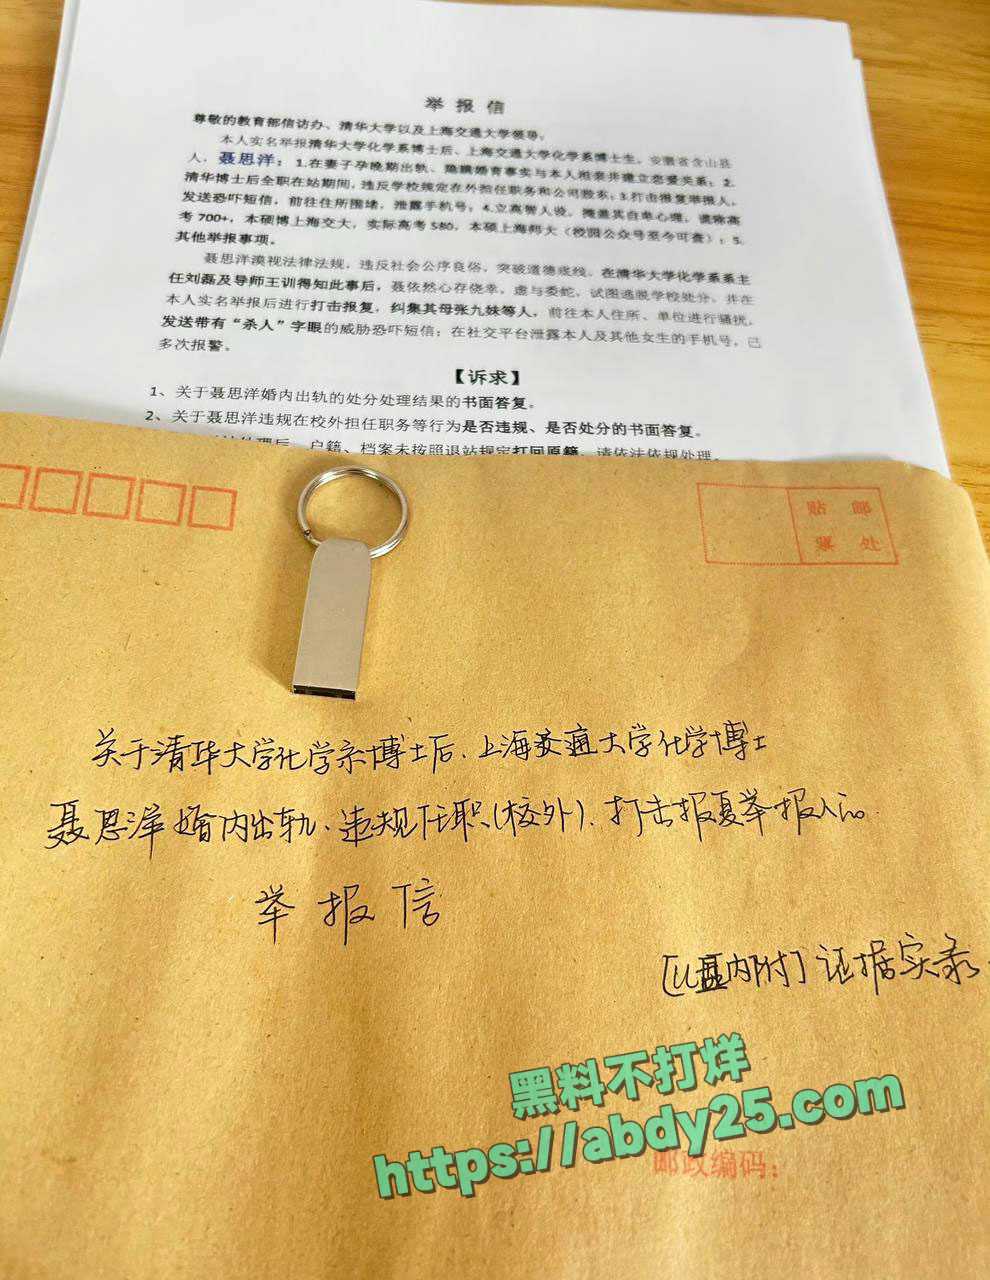 举 报 信
尊敬的教育部信访办、清华大学以及上海交通大学领导，
本人实名举报清华大学化学系博士后、上海交通大学化学系博士生，安徽省含山县
人，聂思洋：1.在妻子孕晚期出轨、隐瞒婚育事实与本人相亲并建立恋爱关系；2.
清华博士后全职在站期间，违反学校规定在外担任职务和公司股东；3.打击报复举报人，
发送恐吓短信，前往住所围堵，泄露手机号；4.立高智人设，掩盖其自卑心理，谎称高
考 700+，本硕博上海交大，实际高考 580，本硕上海师大（校园公众号至今可查）；5.
其他举报事项。
聂思洋漠视法律法规，违反社会公序良俗，突破道德底线。在清华大学化学系系主
任刘磊及导师王训得知此事后，聂依然心存侥幸，虚与委蛇，试图逃脱学校处分，并在
本人实名举报后进行打击报复，纠集其母张九妹等人，前往本人住所、单位进行骚扰，
发送带有“杀人”字眼的威胁恐吓短信；在社交平台泄露本人及其他女生的手机号，已
多次报警。
【诉求】
1、关于聂思洋婚内出轨的处分处理结果的书面答复。
2、关于聂思洋违规在校外担任职务等行为是否违规、是否处分的书面答复。
处理后，户籍、档案未按照退站规定打回原籍，请依法依规处理。
贴 邮
票 处
关于清华大学化学系博士后、上海交通大学化学博士
聂思洋婚内出轨、违规任职(校外)、打击报复举报人的
举 报 信
[U盘内附] 证据实录
黑料不打烊
https://abdy25.com
邮政编码：